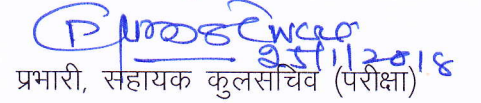 25/1/2018
प्रभारी, सहायक कुलसचिव (परीक्षा)